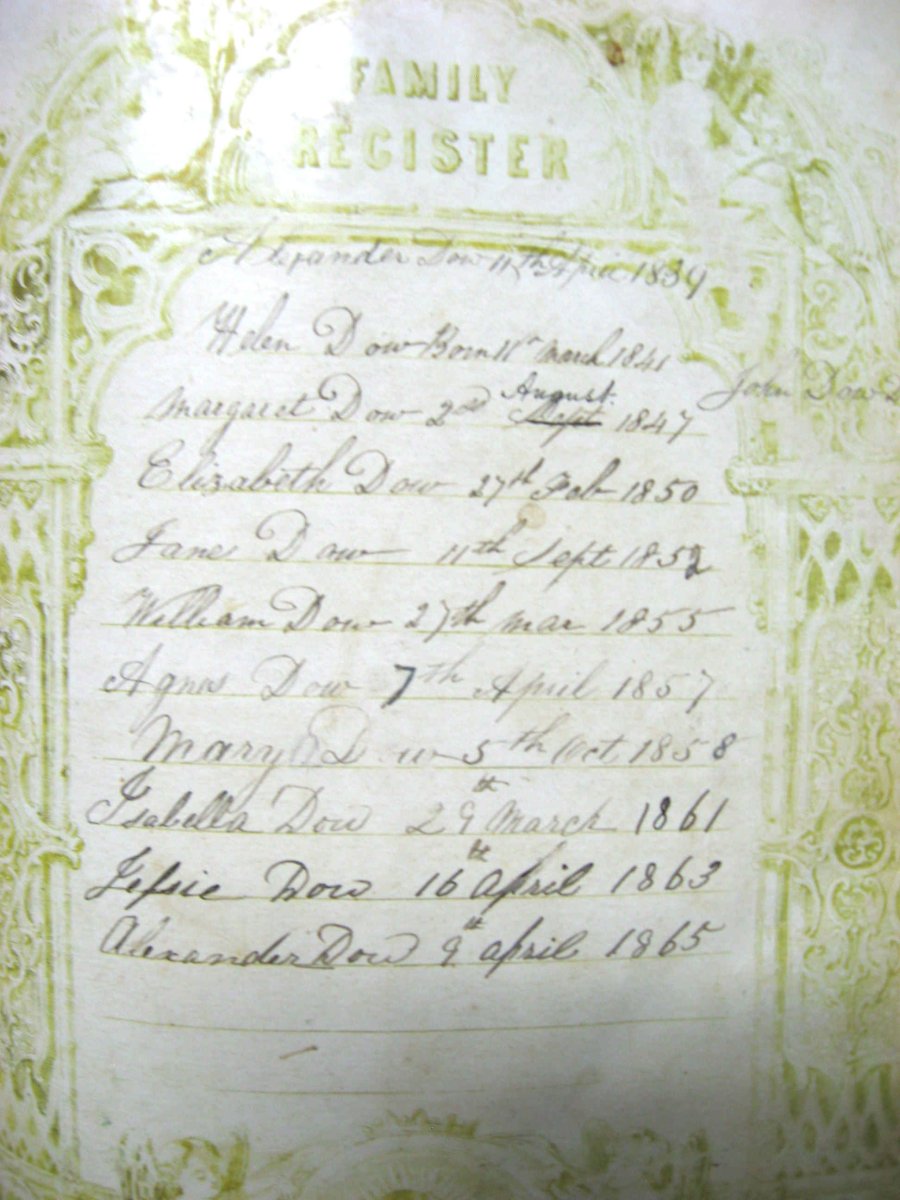 FAMILY
REGISTER
Alexander Dow 11th April 1839
Helen Dow Born 11th March 1841
August
Margaret Dow 2nd Sept 1847
John Dow
Elizabeth Dow 27th Feb 1850
Jane Dow 11th Sept 1852
William Dow 27th Mar 1855
Agnes Dow 7th April 1857
Mary Dow 5th Oct 1858
Isabella Dow 29th March 1861
Jessie Dow 16th April 1863
Alexander Dow 9th April 1865